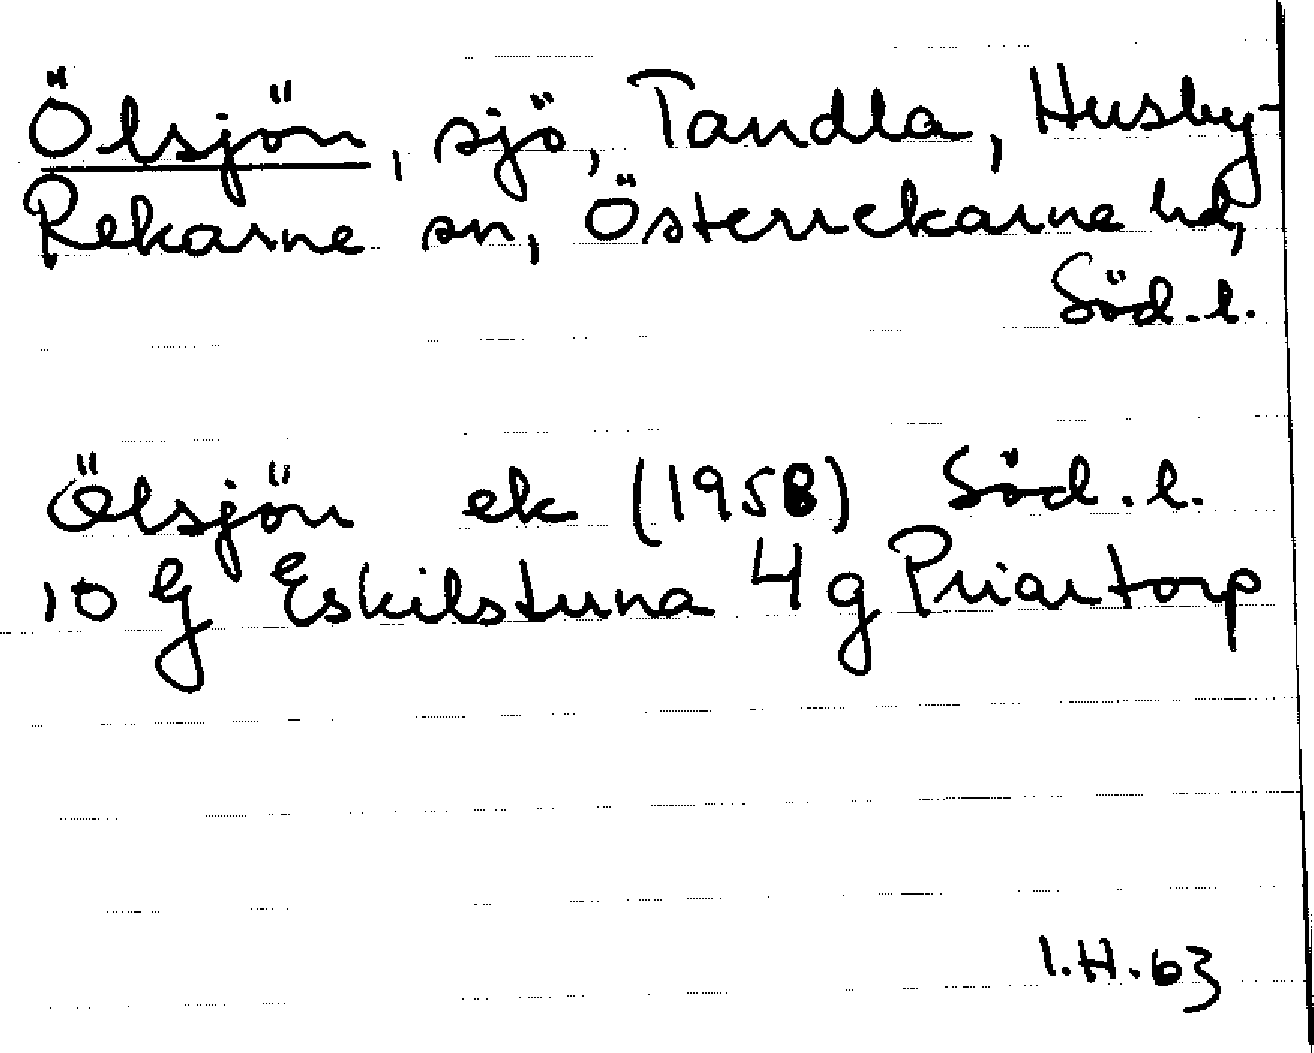 Ölsjön, sjö, Tandla, Husby-
Rekarne sn, Österrekarne hd,
Söd. l.
Ölsjön ek (1958) Söd. l.
10 g Eskilstuna 4 g Priartorp
I.H. 63